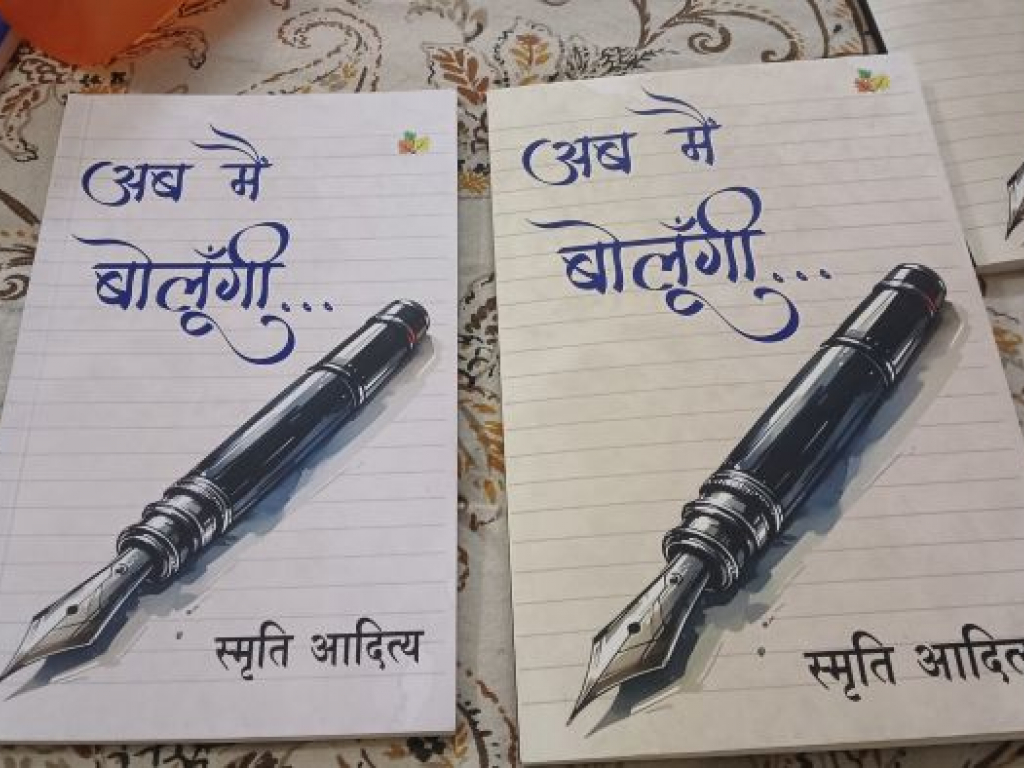 अब मैं
बोलूँगी...
स्मृति आदित्य
अब मैं
बोलूँगी...
स्मृति आदित्य